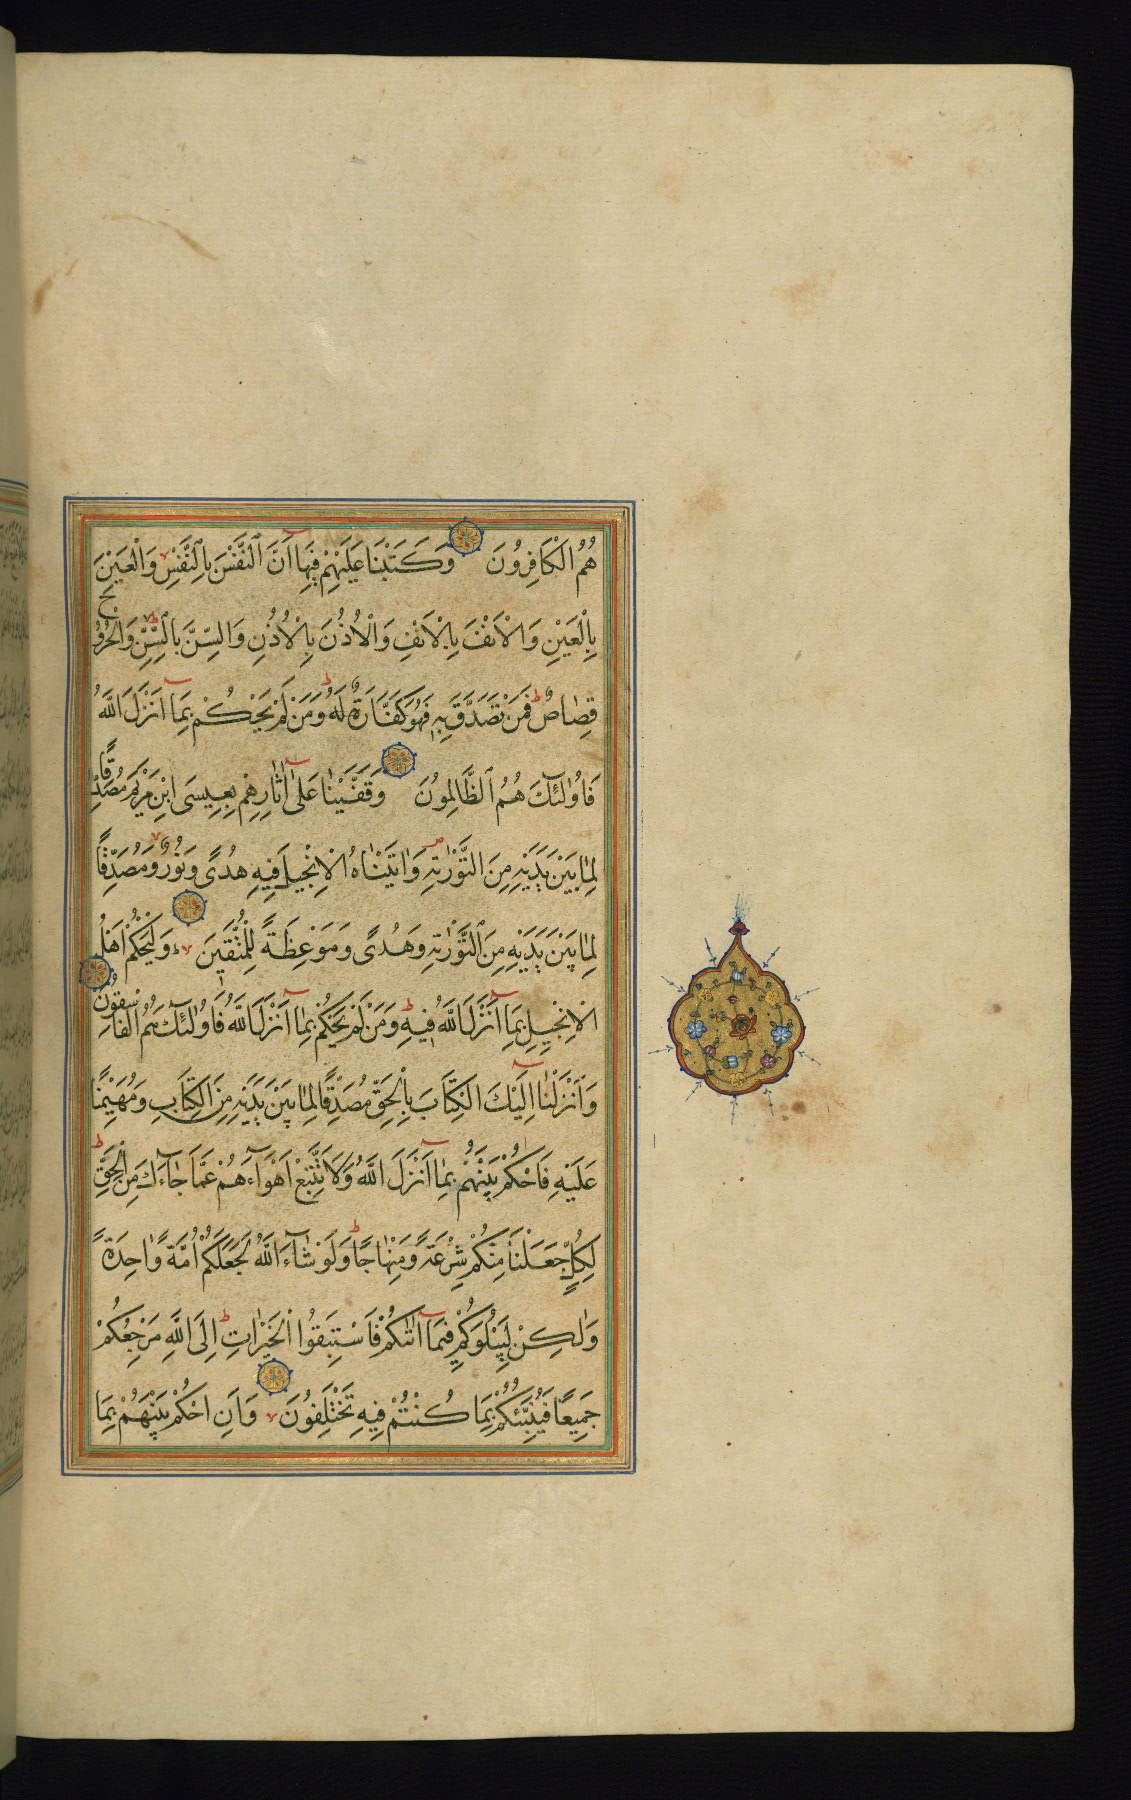 هُمُ الْكَافِرُونَ وَكَتَبْنَا عَلَيْهِمْ فِيهَا اَنَّ النَّفْسَ بِالنَّفْسِ وَالْعَيْنَ
بِالْعَيْنِ وَالْاَنْفَ بِالْاَنْفِ وَالْاُذُنَ بِالْاُذُنِ وَالسِّنَّ بِالسِّنِّ وَالْجُرُوحَ
قِصَاصٌ فَمَنْ تَصَدَّقَ بِهِ فَهُوَ كَفَّارَةٌ لَهُ وَمَنْ لَمْ يَحْكُمْ بِمَا اَنْزَلَ اللّٰهُ
فَاُولٰئِكَ هُمُ الظَّالِمُونَ وَقَفَّيْنَا عَلٰى اٰثَارِهِمْ بِعِيسَى ابْنِ مَرْيَمَ مُصَدِّقًا
لِمَا بَيْنَ يَدَيْهِ مِنَ التَّوْرٰيةِ وَاٰتَيْنَاهُ الْاِنْجِيلَ فِيهِ هُدًى وَنُورٌ وَمُصَدِّقًا
لِمَا بَيْنَ يَدَيْهِ مِنَ التَّوْرٰيةِ وَهُدًى وَمَوْعِظَةً لِلْمُتَّقِينَ وَلْيَحْكُمْ اَهْلُ
الْاِنْجِيلِ بِمَا اَنْزَلَ اللّٰهُ فِيهِ وَمَنْ لَمْ يَحْكُمْ بِمَا اَنْزَلَ اللّٰهُ فَاُولٰئِكَ هُمُ الْفَاسِقُونَ
وَاَنْزَلْنَا اِلَيْكَ الْكِتَابَ بِالْحَقِّ مُصَدِّقًا لِمَا بَيْنَ يَدَيْهِ مِنَ الْكِتَابِ وَمُهَيْمِنًا
عَلَيْهِ فَاحْكُمْ بَيْنَهُمْ بِمَا اَنْزَلَ اللّٰهُ وَلَا تَتَّبِعْ اَهْوَاءَهُمْ عَمَّا جَاءَكَ مِنَ الْحَقِّ
لِكُلٍّ جَعَلْنَا مِنْكُمْ شِرْعَةً وَمِنْهَاجًا وَلَوْ شَاءَ اللّٰهُ لَجَعَلَكُمْ اُمَّةً وَاحِدَةً
وَلٰكِنْ لِيَبْلُوَكُمْ فِيمَا اٰتٰيكُمْ فَاسْتَبِقُوا الْخَيْرَاتِ اِلَى اللّٰهِ مَرْجِعُكُمْ
جَمِيعًا فَيُنَبِّئُكُمْ بِمَا كُنْتُمْ فِيهِ تَخْتَلِفُونَ وَاَنِ احْكُمْ بَيْنَهُمْ بِمَا